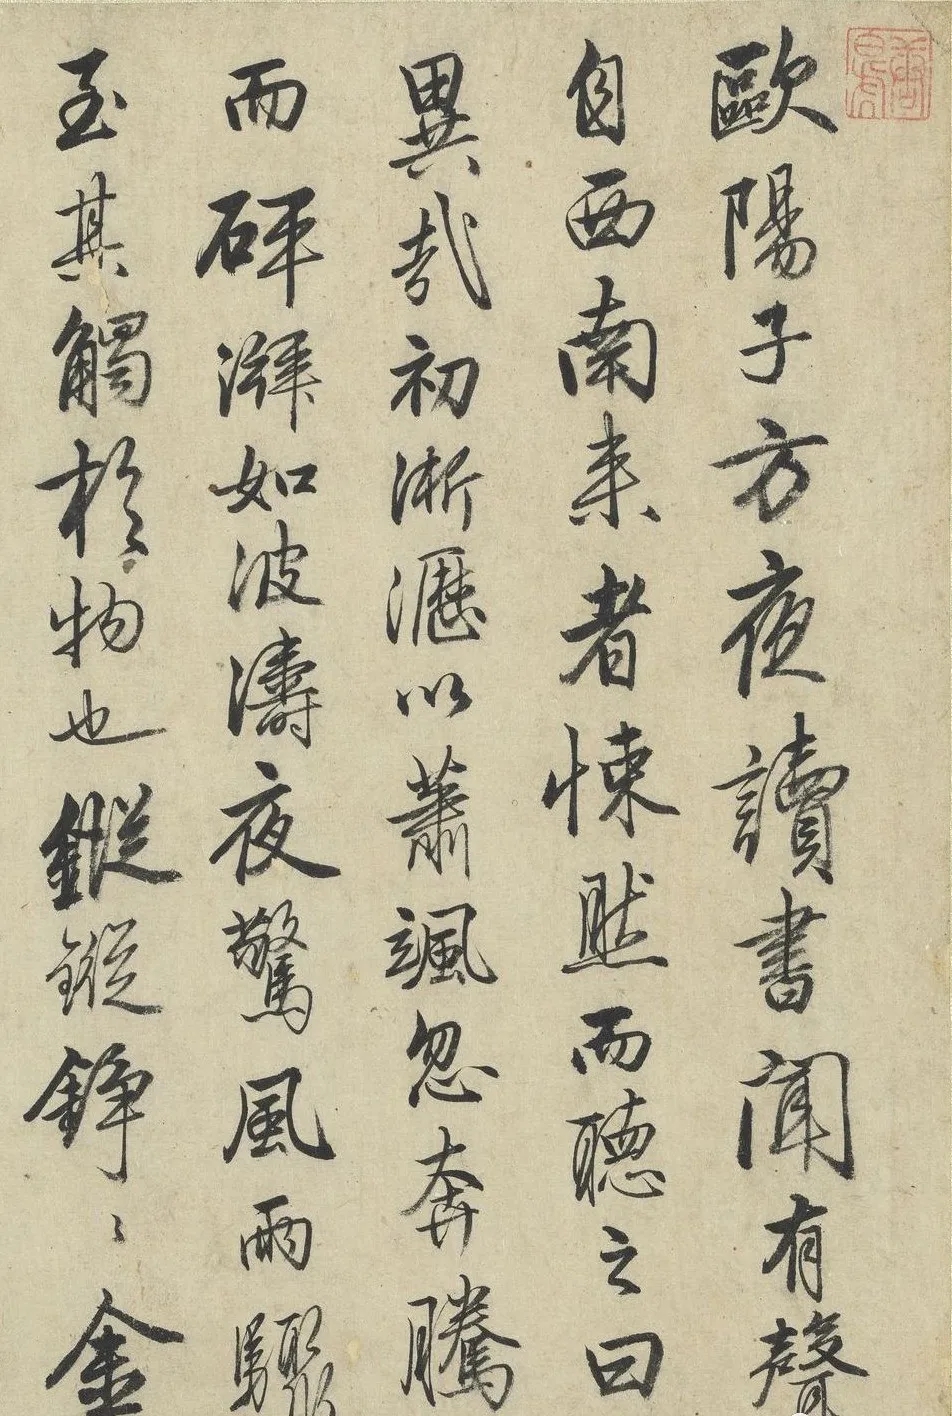 歐陽子方夜讀書聞有聲
自西南来者悚然而聽之曰
異哉初淅瀝以蕭颯忽奔騰
而砰湃如波濤夜驚風雨驟
至其觸於物也鏦鏦錚〻金